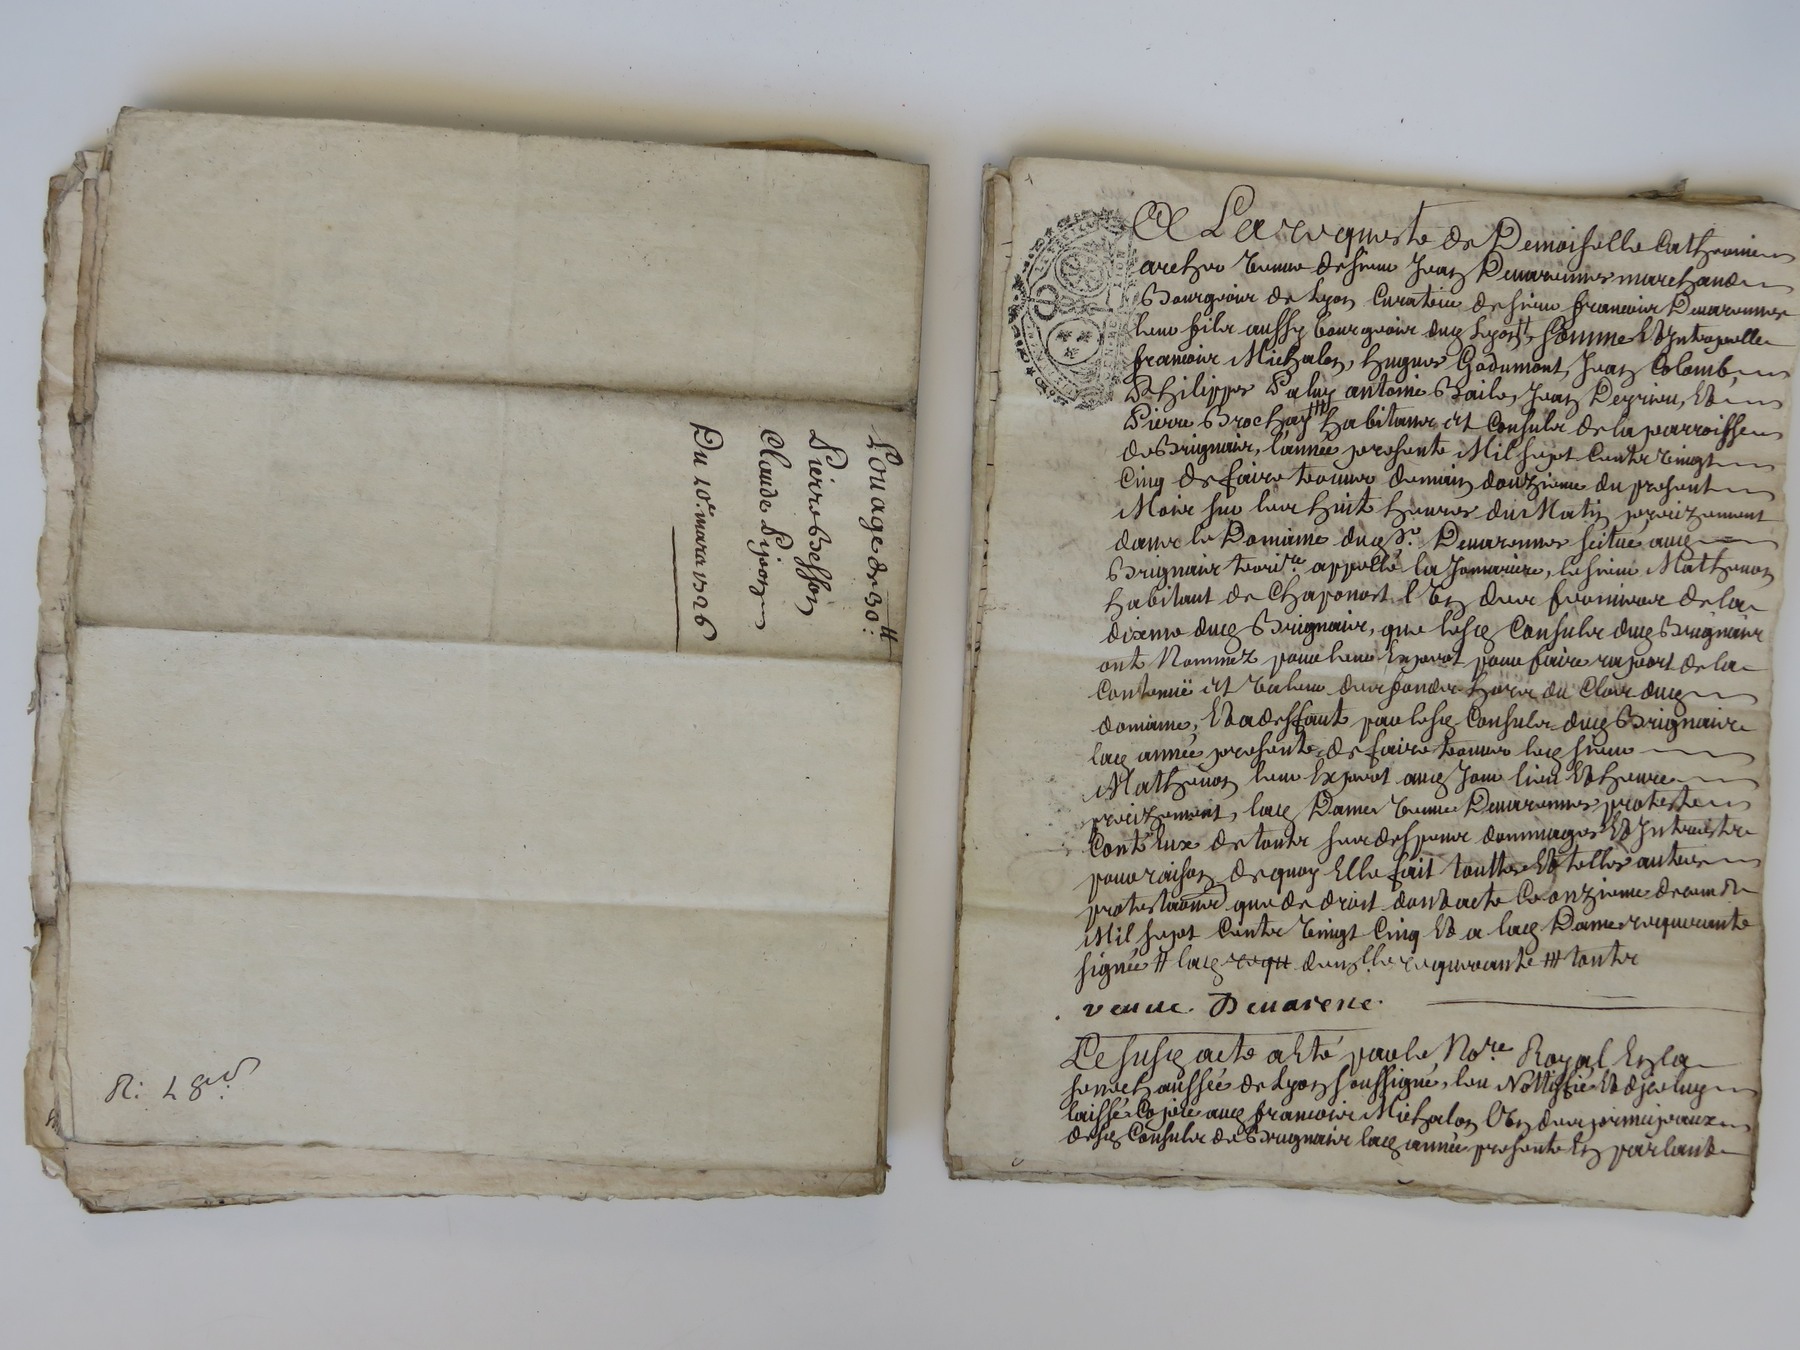 Louage de 30 ₶:
Pierre Besson
Claude Pijon
Du 10e. mars 1726
R: 48 s d
A La requeste de Demoiselle Catherine
archer veuve de sieur Jean Devarennes marchand
Bourgeois de Lyon Curatrice de sieur françois Devarennes
leur fils aussy bourgeois dud Lyon ++ sommé Et Interpellé
françois Michalon, hugues Godumont, Jean Colomb,
Philippes Paluy antoine Baile, Jean Deyrieu, Et
Pierre Brochay +++ habitans et Consuls de la parroisse
de Brignais, l'année presente Mil sept Cents vingt
Cinq de faire trouver demain douzieme du present
Mois sur les huit heures du Matin precizement
dans le Domaine dud Sr. Devarennes scitué aud
Brignais terire. appellé la Jamariere, le sieur Mathevon
habitant de Chaponost l'Un des fermiers de la
dixme dud Brignais, que lesd Consuls dud Brignais
ont Nommez pour leur Expert pour faire raport de la
Contenüe et valeur des fonds hors du Clos dud
domaine, Et a deffaut par lesd Consuls dud Brignais
lad année presente de faire trouver led sieur
Mathevon leur Expert aud Jour lieu Et heure
precizement, lad Dame veuve Devarennes proteste
Contr'Eux de touts ses despens dommages Et Interestz
pour raison de quoy Elle fait touttes Et telles autres
protestaons que de droit dont acte Ce onzieme decembre
Mil sept Cents vingt Cinq Et a lad Dame requerante
signé ++ lad requ demlle requerante +++ touts
veuue Deuarene.
Le susd acte a Eté par le Nore. Royal En la
senechaussée de Lyon soussigné, leu Nottiffié Et d'jceluy
laissé Copie aud françois Michalon L'Un des principaux
desd Consuls de Brignais lad année presente En parlant